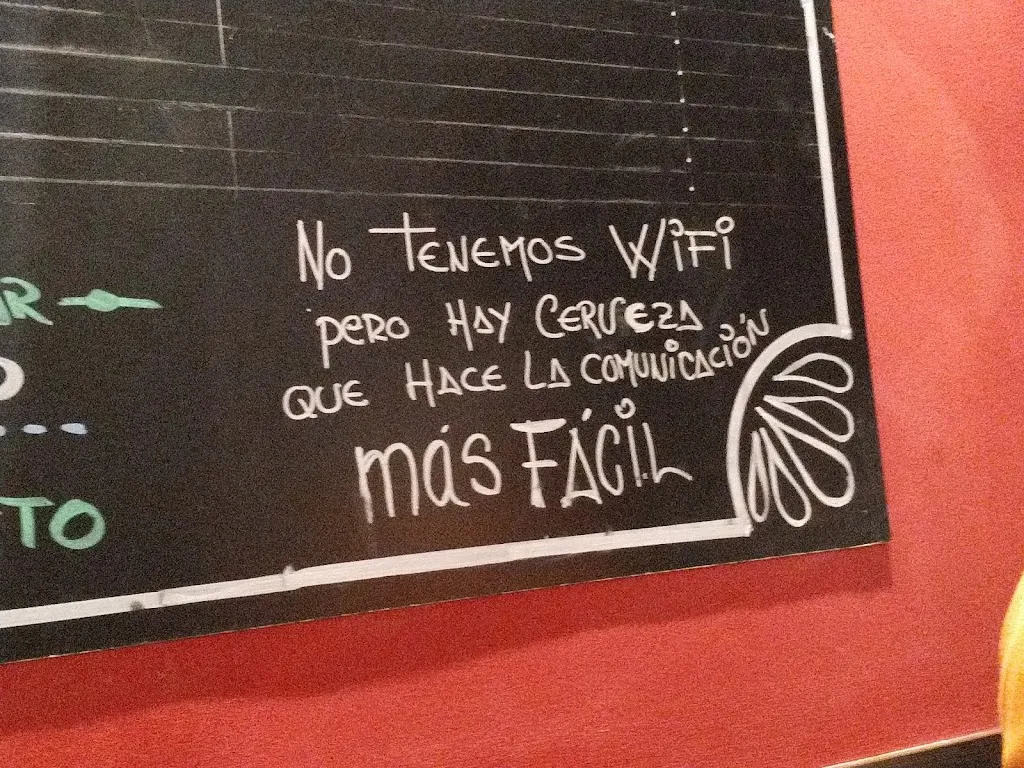 No TENEMOS WiFi
pERO HAY CERVEZA
QUE HACE LA COMUNICACIÓN
MÁS FÁCIL
TO